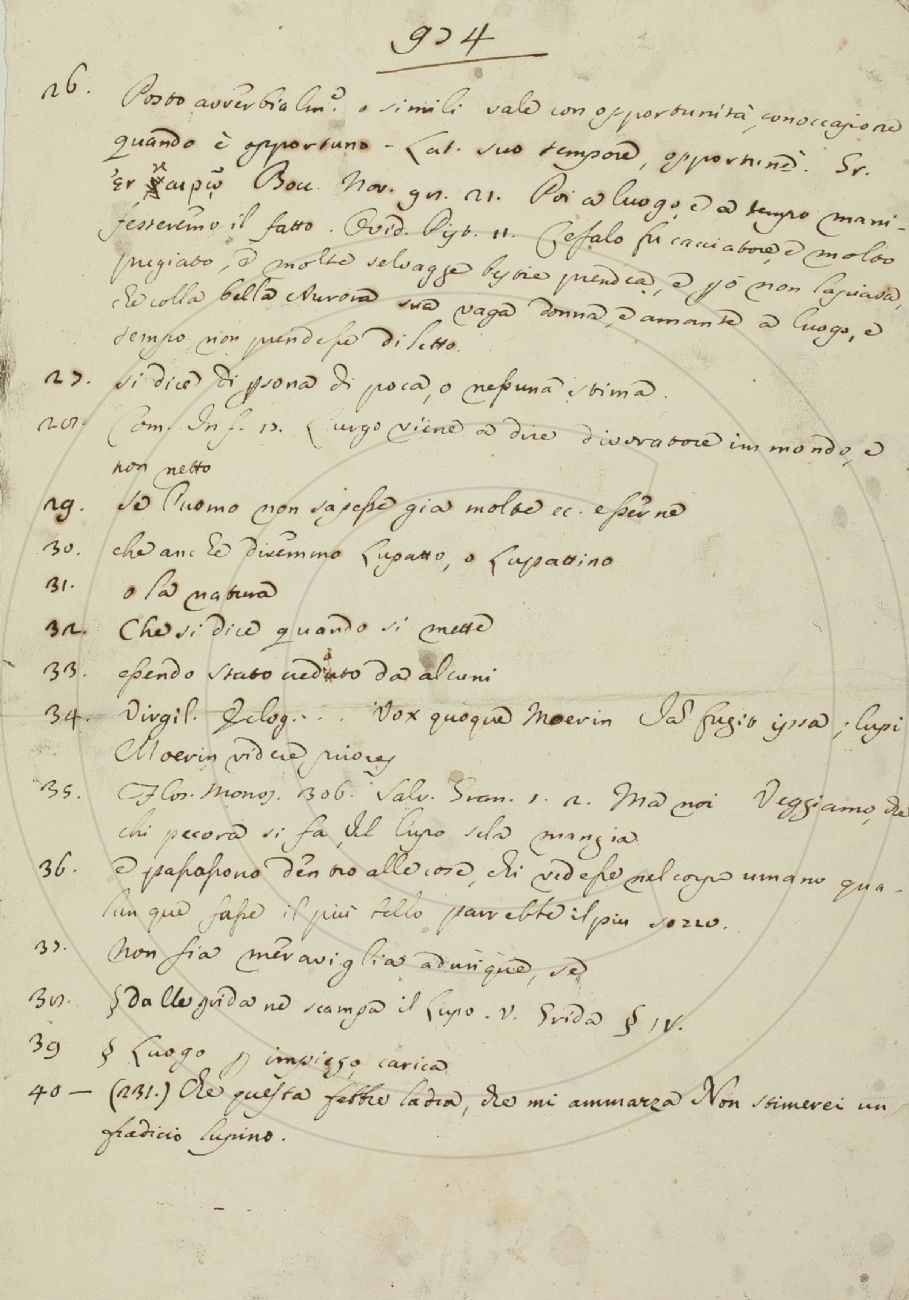 974
26. Posto avverbialm.e o simili vale con opportunità, con occasione
quando è opportuno - Lat. suo tempore, opportunè. Gr.
ἐν καιρῷ Bocc. Nov. g. 8. 21. Poi a luogo, e a tempo mani-
festeremo il fatto. Ovid. Pist. 11. Cefalo fu cacciatore, e molto
pregiato, e molte selvagge bestie prendea, e però non lasciava,
che colla bella Aurora sua vaga donna, e amante a luogo, e
tempo non prendesse diletto.
27. si dice di psona di poca, o nessuna stima.
28. Com. Inf. 17. Lurgo viene a dire divoratore immondo, e
non netto
29. se l'uomo non sapesse già molte ec. esserne
30. che anche diremmo Lupatto, o Lupattino
31. o la natura
32. Che si dice quando si mette
33. essendo stato veduto da alcuni
34. Virgil. Eclog. . . . Vox quoque Moerin Iā fugit ipsa; lupi
Moerin videre priores
35. Flos. Monos. 306. Salv. Gran. 1. 2. Ma noi Veggiamo, che
chi pecora si fa, il lupo sela mangia
36. e passassono dentro alle cose, chi vedesse nel corpo umano qua-
lunque fusse il più bello parrebbe il più sozzo.
37. Non fia meraviglia adunque, se
38. § dalle grida ne scampa il Lupo. v. Grida § IV.
39 § Luogo p impiego, carica
40 — (231.) Che questa febbre ladra, che mi ammazza Non stimerei un
fradicio lupino.